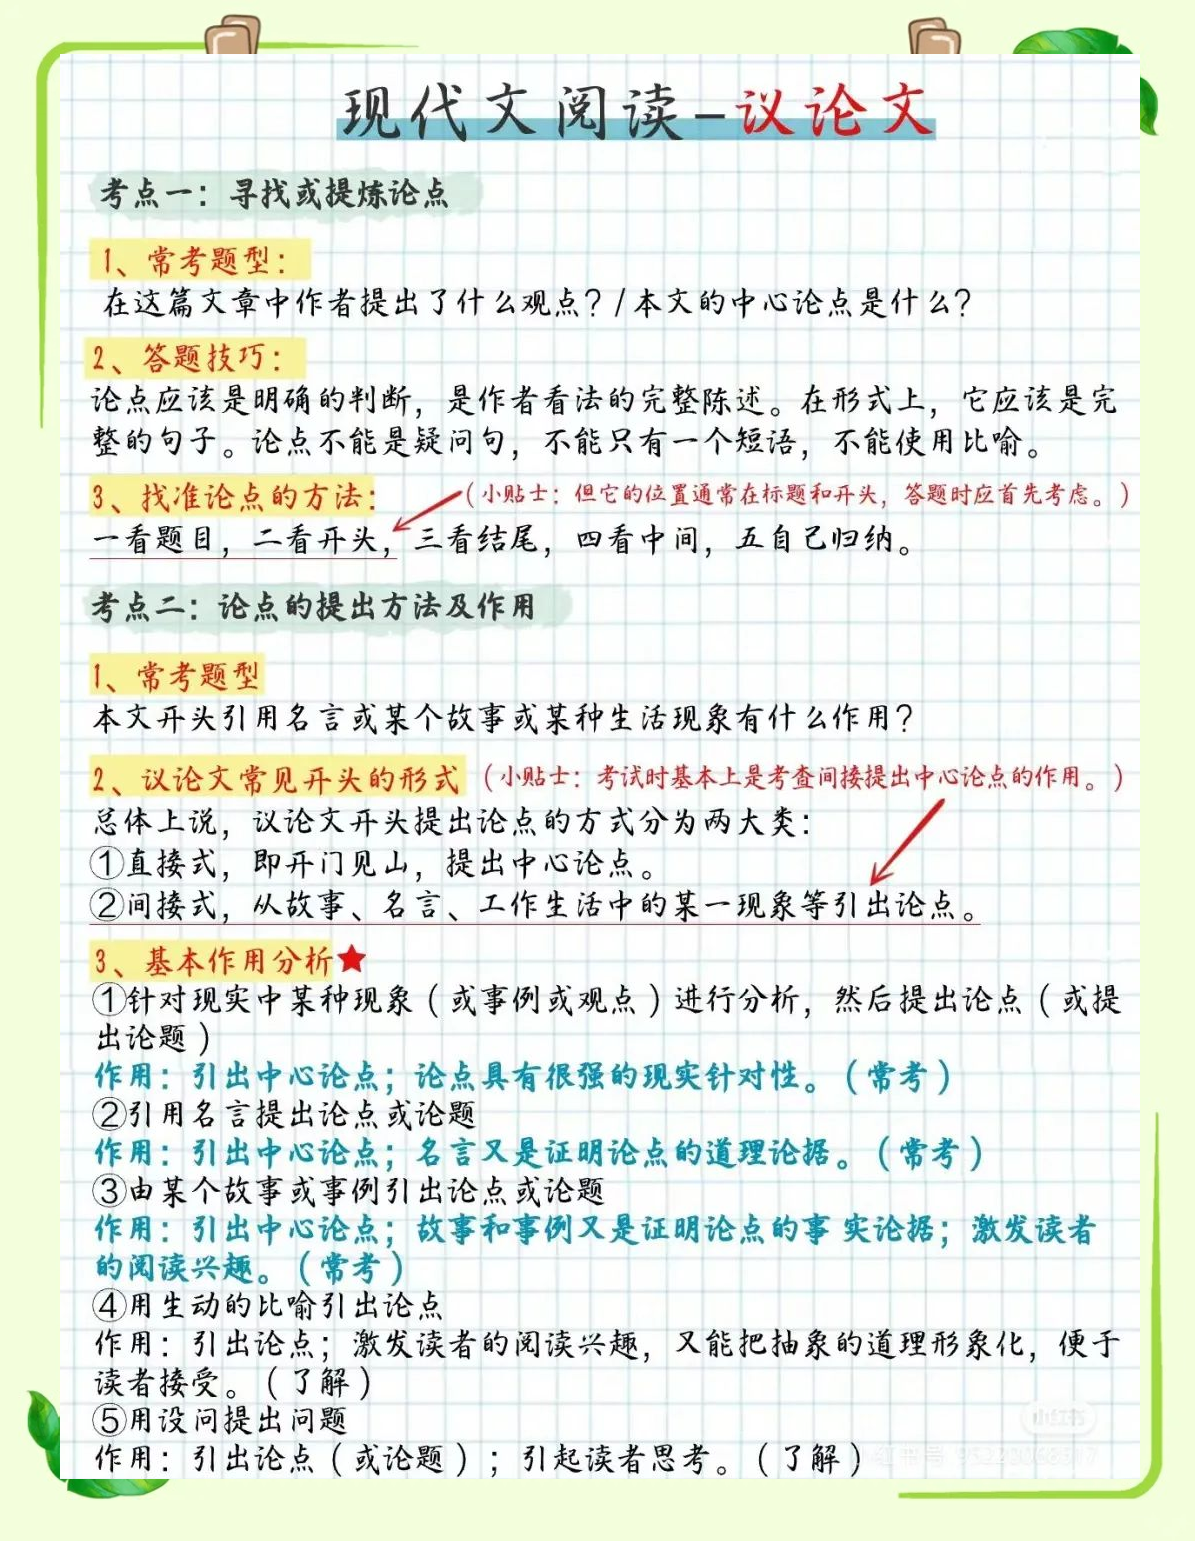 现代文阅读-议论文
考点一：寻找或提炼论点
1、常考题型：
在这篇文章中作者提出了什么观点？/本文的中心论点是什么？
2、答题技巧：
论点应该是明确的判断，是作者看法的完整陈述。在形式上，它应该是完
整的句子。论点不能是疑问句，不能只有一个短语，不能使用比喻。
3、找准论点的方法：（小贴士：但它的位置通常在标题和开头，答题时应首先考虑。）
一看题目，二看开头，三看结尾，四看中间，五自己归纳。
考点二：论点的提出方法及作用
1、常考题型
本文开头引用名言或某个故事或某种生活现象有什么作用？
2、议论文常见开头的形式（小贴士：考试时基本上是考查间接提出中心论点的作用。）
总体上说，议论文开头提出论点的方式分为两大类：
①直接式，即开门见山，提出中心论点。
②间接式，从故事、名言、工作生活中的某一现象等引出论点。
3、基本作用分析★
①针对现实中某种现象（或事例或观点）进行分析，然后提出论点（或提
出论题）
作用：引出中心论点；论点具有很强的现实针对性。（常考）
②引用名言提出论点或论题
作用：引出中心论点；名言又是证明论点的道理论据。（常考）
③由某个故事或事例引出论点或论题
作用：引出中心论点；故事和事例又是证明论点的事 实论据；激发读者
的阅读兴趣。（常考）
④用生动的比喻引出论点
作用：引出论点；激发读者的阅读兴趣，又能把抽象的道理形象化，便于
读者接受。（了解）
⑤用设问提出问题
小红书
作用：引出论点（或论题）；引起读者思考。（了解）